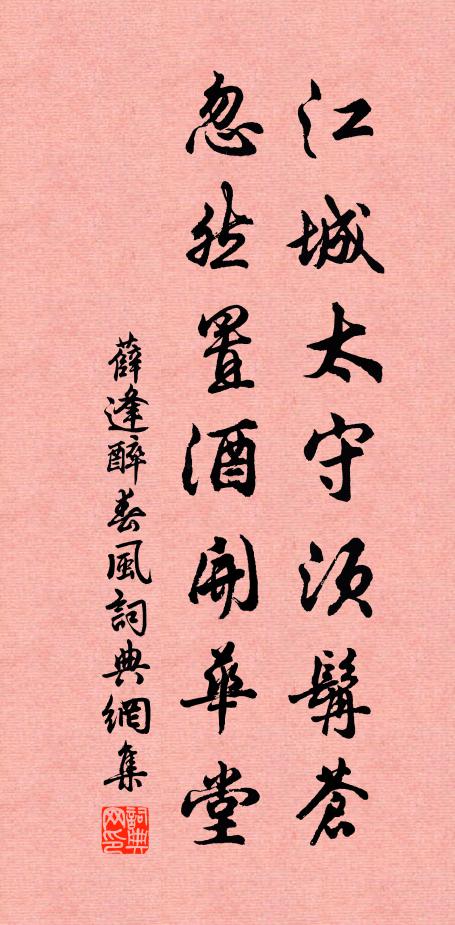 江城太守須髯蒼
忽然置酒開華堂
薛逢醉春風詞典網集
詞典網印